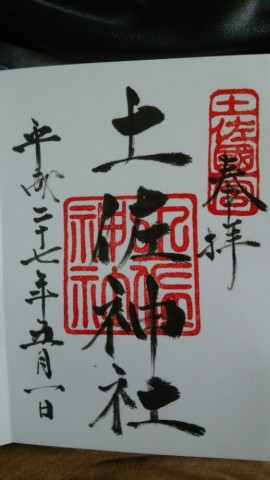 奉拝
土佐神社
平成二十七年五月一日
土佐神社